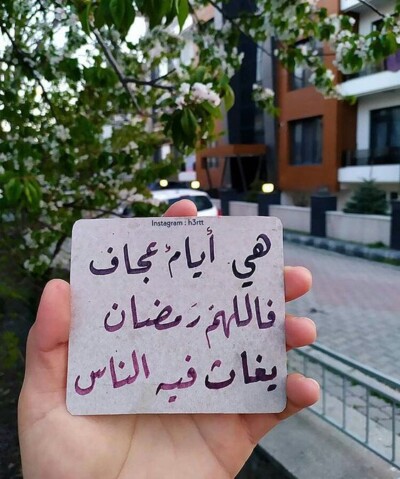 Instagram : h3rtt
هي أيامٌ عجاف
فاللهمّ رَمضان
يغاث فيه الناس